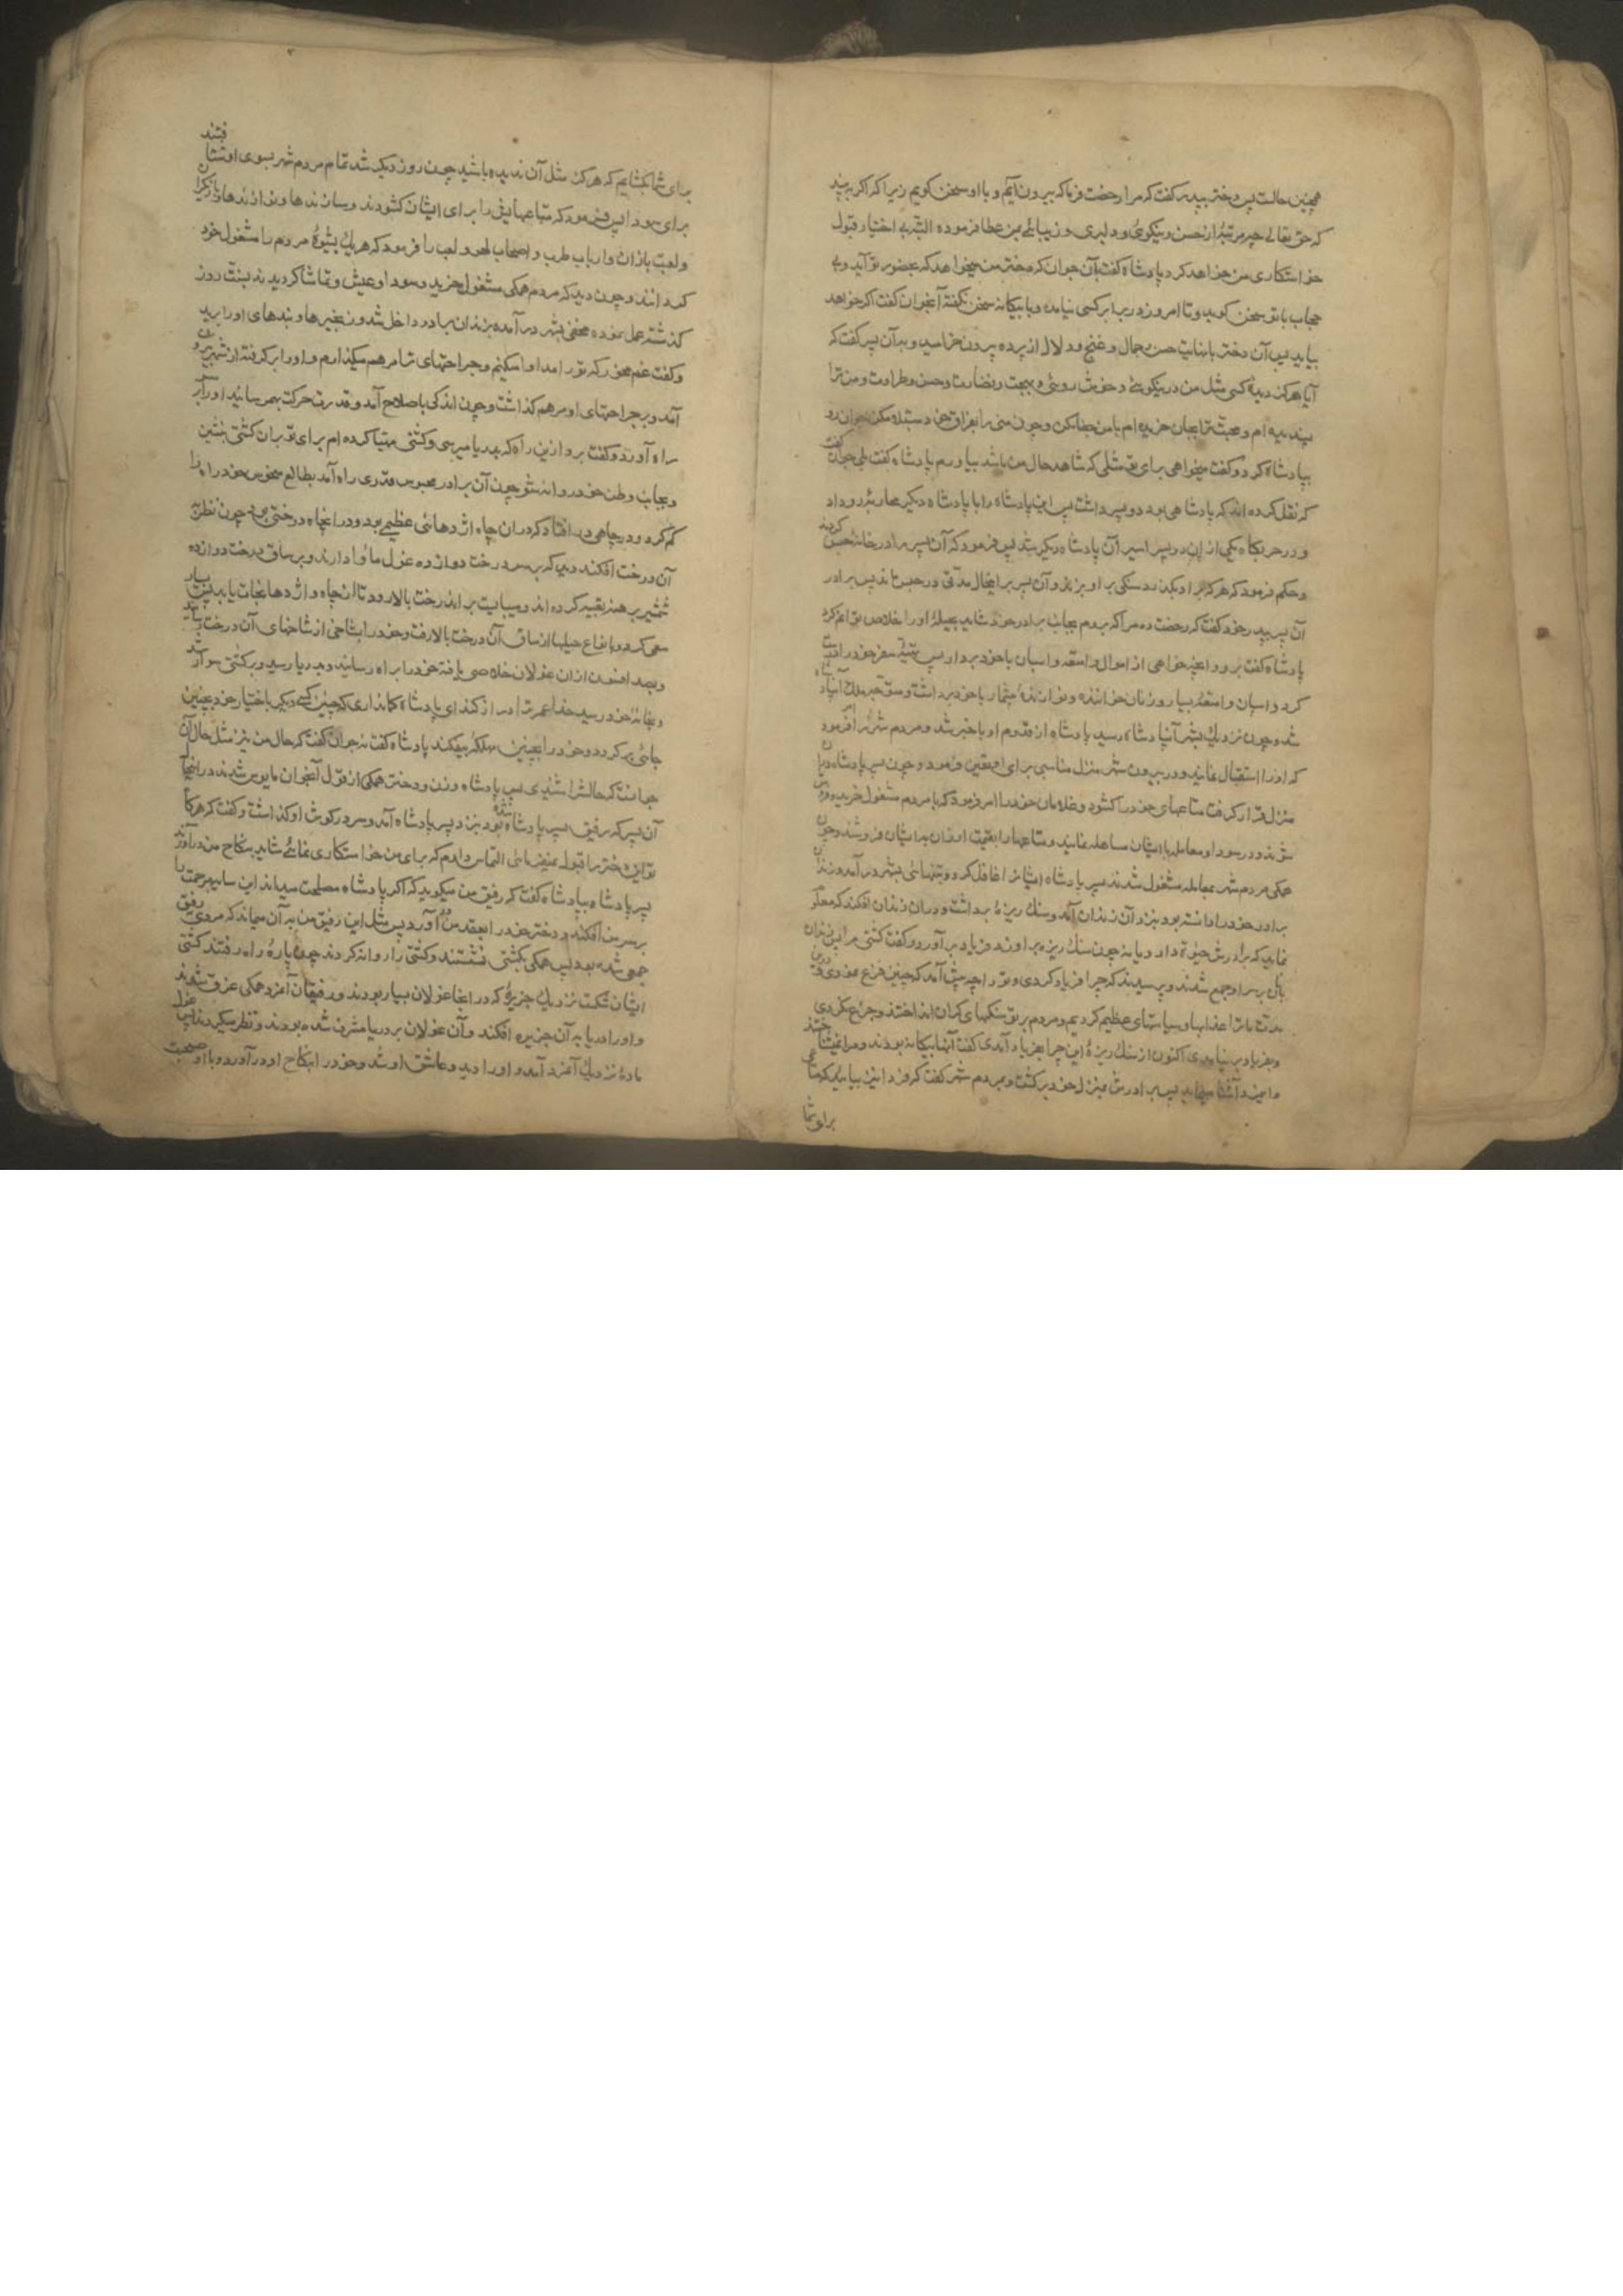 همچنین حالست پس دختر بپدر گفت که مرا رخصت فرما که بیرون آیم و با او سخن گویم زیرا که اگر به بیند
که حق تعالی چه مرتبهٔ از حسن و نیکوئی و دلبری و زیبائی بمن عطا فرموده البته بی اختیار قبول
خواستکاری من خواهد کرد پادشاه گفت بآن جوان که دختر من میخواهد که بحضور تو آید و بی
حجاب با تو سخن گوید و تا امروز در برابر کسی نیامده و با بیگانه سخن نگفته آنجوان گفت اگر خواهد
بیاید پس آن دختر با نهایت حسن و جمال و غنج و دلال از پرده بیرون خرامید و به آن پسر گفت که
آیا هرگز دیدهٔ کسی مثل من در نیکوئی و خوش روئی و بهجت و نضارت و حسن و طراوت و من ترا
پسندیده ام و محبت ترا بجان خریده ام با من جفا مکن و چون منی را بفراق خود مبتلا مکن جوان رو
بپادشاه کرد و گفت میخواهی برای تو مثلی که شاهد حال من باشد بیاورم پادشاه گفت بلی جوان گفت
که نقل کرده اند که پادشاهی بود دو پسر داشت پس این پادشاه را با پادشاه دیگر محاربهٔ رو داد
و در حربگاه یکی از این دو پسر اسیر آن پادشاه دیگر شد پس فرمود که آن پسر را در خانه حبس کردند
و حکم فرمود که هر که بر او بگذرد سنگی بر او بزند و آن پسر بر اینحال مدتی در حبس ماند پس برادر
آن پسر بپدر خود گفت که رخصت ده مرا که بروم بجانب برادر خود شاید بحیلهٔ او را خلاص توانم کرد
پادشاه گفت برو و آنچه خواهی از اموال و امتعه و اسبان با خود بردار پس تهیهٔ سفر خود را درست
کرد و اسبان و امتعهٔ بسیار و زنان خواننده و نوازندهٔ بیشمار با خود برداشت و متوجه ملک آن پادشاه
شد و چون نزدیک بشهر آن پادشاه رسید پادشاه از قدوم او با خبر شد و مردم شهر را امر فرمود
که او را استقبال نمایند و در بیرون شهر منزل مناسبی برای او تعیین فرمود و چون پسر پادشاه در آن
منزل قرار گرفت متاعهای خود را گشود و غلامان خود را امر فرمود که با مردم مشغول خرید و فروش
شوند و در سودا و معامله با ایشان مساهله نمایند و متاعها را بقیمت ارزان به ایشان فروشند و چون
همگی مردم شهر بمعامله مشغول شدند پسر پادشاه ایشانرا غافل کرد و بتنهائی بشهر درآمد و زندان
برادر خود را دانسته بود بنزد آن زندان آمد و سنگ ریزهٔ برداشت و در آن زندان افکند که معلوم
نماید که برادرش حیوة دارد یا نه چون سنگ ریزه بر او زد فریاد بر آورد و گفت کشتی مرا پس زندان
بانان بر سر او جمع شدند و پرسیدند که چرا فریاد کردی و ترا چه پیش آمد که چنین فزع نمودی و درین
مدت ما ترا عذابها و سیاستهای عظیم کردیم و مردم بر تو سنگهای گران انداختند و جزع نکردی
و بفریاد بر نیامدی اکنون از سنگ ریزهٔ این چرا بفریاد آمدی گفت آنها بیگانه بودند و مرا نمیشناختند
و این مرد آشنا مینماید پس برادرش بمنزل خود برگشت و بمردم شهر گفت که فردا نیز بیائید که متاعی
برای شما
برای شما بگشایم که هرگز مثل آن ندیده باشید چون روز دیگر شد تمام مردم شهر بسوی او شتافتند
برای سودا پس فرمود که متاعهایش را برای ایشان گشودند و سازندها و نوازندها و بازیگران
و لعبت بازان و ارباب طرب و اصحاب لهو و لعب را فرمود که هر یک بشیوهٔ مردم را مشغول خود
کردانند و چون دید که مردم همگی مشغول خرید و سودا و عیش و تماشا گردیدند بسنت روز
گذشته عمل نموده مخفی بشهر درآمده بزندان برادر داخل شد و زنجیرها و بندهای او را برید
و گفت غم مخور که ترا مداوا میکنم و جراحتهای ترا مرهم میگذارم و او را بر گرفته از شهر بیرون
آمد و بر جراحتهای او مرهم گذاشت و چون اندکی باصلاح آمد و قدرت حرکت بهم رسانید او را بر سر
راه آورد و گفت برو ازین راه که بدریا میرسی و کشتی مهیا کرده ام برای تو بر آن کشتی بنشین
و بجانب وطن خود روانه شو چون آن برادر محبوس قدری راه آمد بطالع منحوس خود راه را
گم کرد و در چاهی در افتاد که در آن چاه اژدهائی عظیم بود و در آنچاه درختی بود چون نظر بر
آن درخت افکند دید که بر سر درخت دوازده غول ماوا دارند و بر ساق درخت دوازده
شمشیر برهنه تعبیه کرده اند و میبایست بر آن درخت بالا رود تا از چاه و اژدها نجات یابد پس بسیار
سعی کرد و بانواع حیلها از ساق آن درخت بالا رفت و خود را بشاخی از شاخهای آن درخت رسانید
و بصد افسون از آن غولان خلاصی یافته خود را براه رسانید و بدریا رسید و بر کشتی سوار شد
و بخانهٔ خود رسید خدا عمرت دراز کند ای پادشاه گمانداری که چنین کسی دیگر باختیار خود بچنین
جائی بر گردد و خود را بچنین مهلکهٔ بیفکند پادشاه گفت نه جوان گفت که حال من نیز مثل حال آن
جوانست که حالش را شنیدی پس پادشاه و زن و دختر همگی از قول آنجوان مایوس شدند در آنجا
آن پسر که رفیق پسر پادشاه شده بود بنزد پسر پادشاه آمد و سر در گوش او گذاشت و گفت که هرگاه
تو این دختر را قبول نمیفرمائی التماس دارم که برای من خواستکاری نمائی شاید بنکاح من درآورند
پسر پادشاه بپادشاه گفت که رفیق من میگوید که اگر پادشاه مصلحت میداند این سایه مرحمت را
بر سر من افکند و دختر خود را بعقد من در آورد پس مثل این رفیق من به آن میماند که مردی رفیق
جمعی شده بود پس همگی بکشتی نشستند و کشتی را روانه کردند چون پارهٔ راه رفتند کشتی
ایشان شکست نزدیک جزیرهٔ که در آنجا غولان بسیار بودند و رفیقان آنمرد همگی غرق شدند
و او را دریا به آن جزیره افکند و آن غولان بر دریا مشرف شده بودند و نظر میکردند پس غول
مادهٔ نزدیک آنمرد آمد و او را دید و عاشق او شد و خود را بنکاح او درآورد و با او صحبت